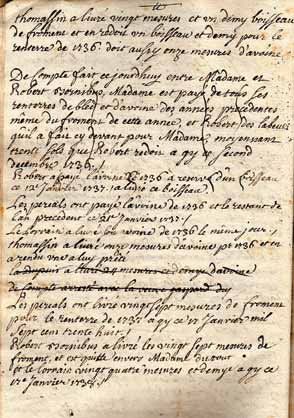 thomassin a livré vingt mesures et un demy boisseau
de froment et en redoit un boisseau et demy pour le
renterre de 1736. doit aussy onze mesures d'avoine.
De Compte fait ce jourdhuy entre Madame et
Robert Madame est payé de tous les
renterres de bled et d'avoine des années precedentes
même du froment de cette année, et Robert des labeurs
qu'il a fait cy devant pour Madame, moyennant
trente sols que Robert redoit a gy ce second
decembre 1736.
Robert a payé l'avoine de 1736 a reserve d'un boisseau
ce 12e Janvier 1737. il a livré ce boisseau.
Les perials ont payé l'avoine de 1736 et le restant de
l'an precedent ce Janvier 1737.
Le Lorrain a livré son avoine de 1736 le même jour.
thomassin a livré onze mesures d'avoines pr 1736 et en
a rendu une a luy prêté
d'avoine
de Compte arresté avec la veuve
Les perials ont livré vingt sept mesures de froment
pour le renterre de 1737 a gy ce Janvier mil
sept cens trente huit.
Robert a livré les vingt sept mesures de
froment, et est quitte envers Madame du tout
et le lorrain vingt quatre mesures et demye a gy ce
Janvier 1738.